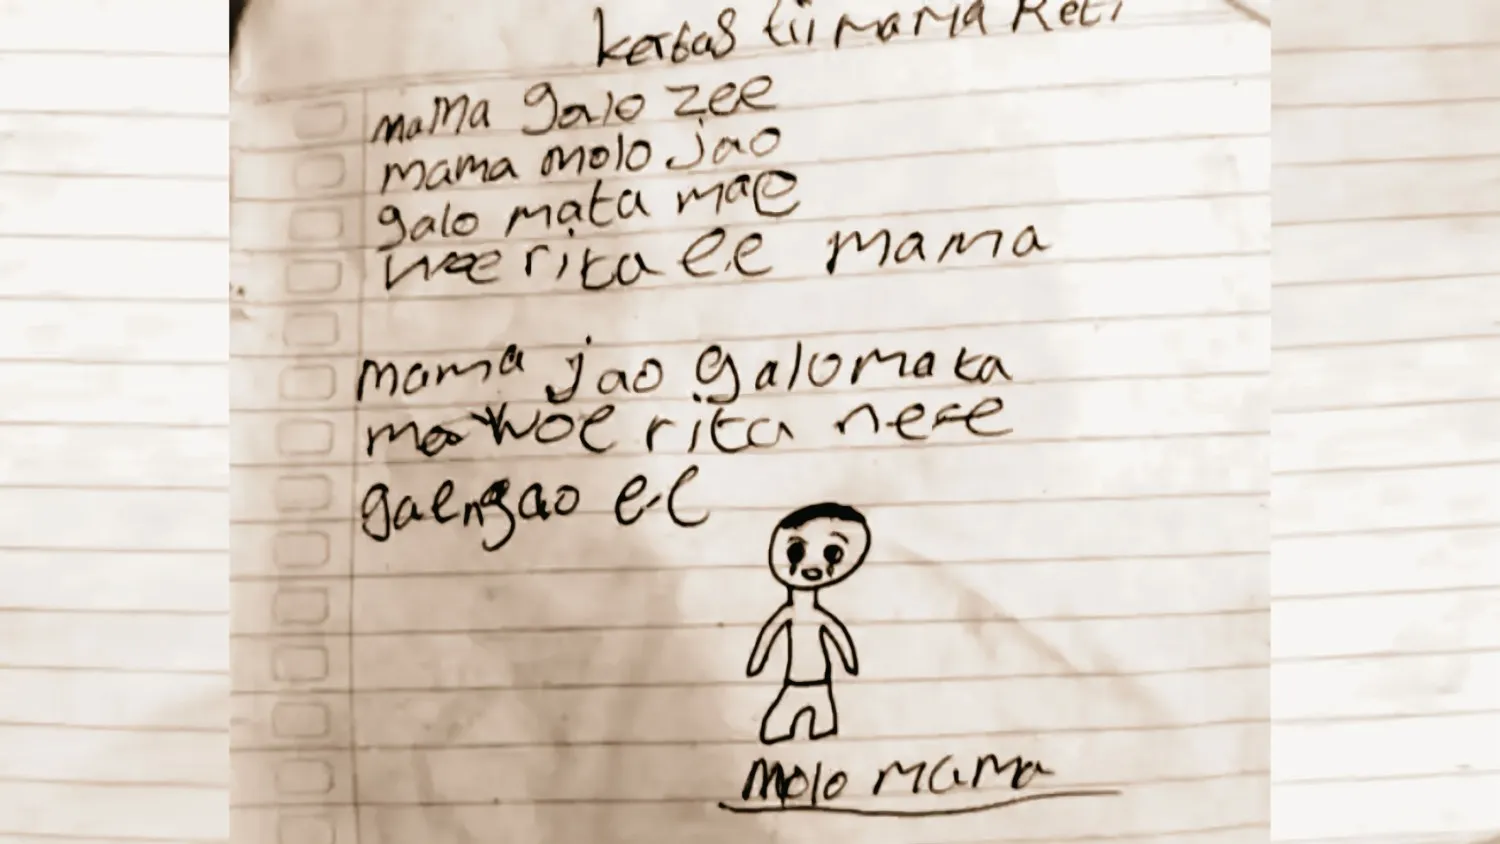 kertas tii mama Reti
mama galo zee
mama molo jao
galo mata mae
woe rita e.e mama
mama jao galo mata
woe rita nese
gaengao e.e
molo mama